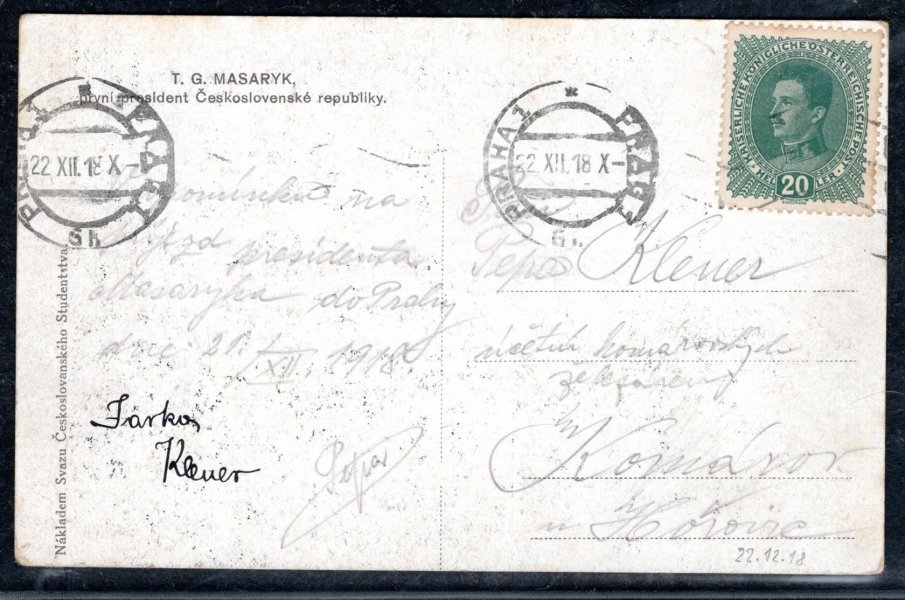 T. G. MASARYK,
první president Československé republiky.
22 XII. 18 X-
PRAHA 1
2. XII. 18 X-
PRAG
KAISERLICHE KÖNIGLICHE ÖSTERREICHISCHE POST
20
na
presidenta
Masaryka do Prahy
dne 21. XII. 1918.
Jarka
Klener
Pepa
Pepa Klener
účetní komárovských
železáren
Komárov
u Hořovic
22.12.18
Nákladem Svazu Československého Studentstva